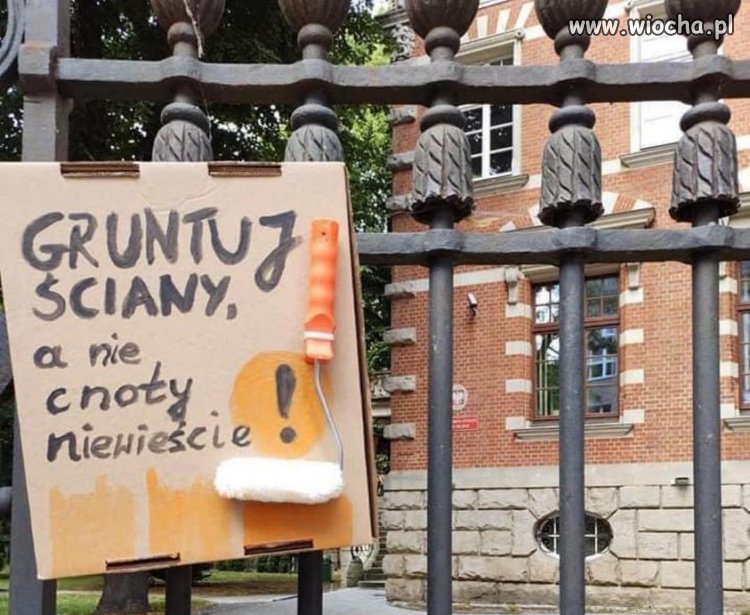 www.wiocha.pl
GRUNTUJ
ŚCIANY,
a nie
cnoty
niewieście
!